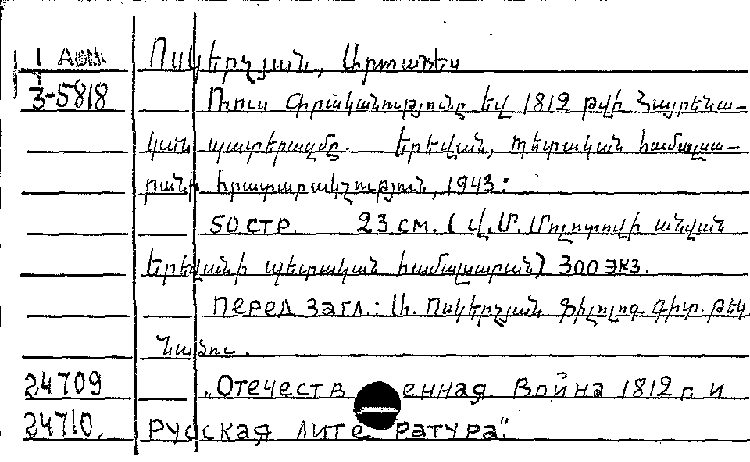 1 Ոսկերչյան, Արտաշես
3-5818 Ռուս գրականությունը եվ 1812 թվի Հայրենա-
կան պատերազմը. Երեվան, Պետական համալսա-
րանի հրատարակչություն, 1943:
50 стр. 23 см. (Վ.Մ. Մոլոտովի անվան
Երեվանի պետական համալսարան) 300 экз.
Перед загл.: Ա. Ոսկերչյան Ֆիլոլոգ. գիտ. թեկ
նածու.
24709 „Отечественная война 1812 г. и
24710. русская литература".